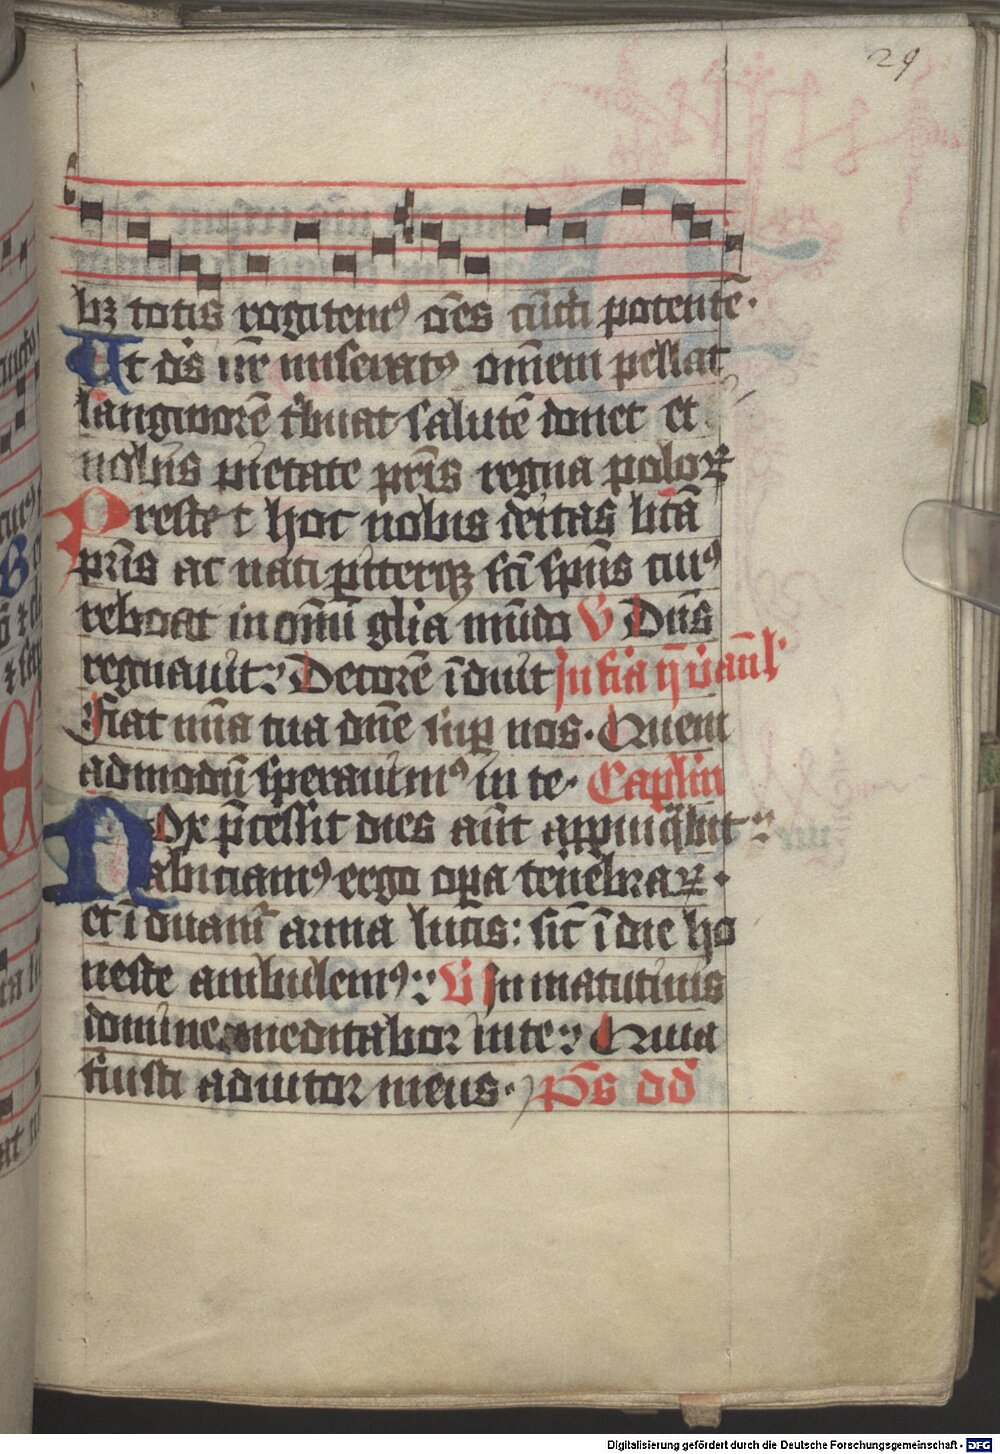 29
bꝫ totis rogitemꝰ oēs cūcti potentē.
Ut ds̄ nr̄ miseratꝰ omēm pellat
langworē tͥbuat salutē donet et
nobis pietate pr̄is regna poloꝝ
Prestet hoc nobis deitas btā
pr̄is ac nati pͥterqꝫ sc̄i spūs cuiꝰ
reboat in om̄i gl̄ia mūdo V Dn̄s
regnauit? Decorē īduit In fīa ij vān̄l
Fiat mīa tua dn̄e sup̄ nos. Quem
admodū sperauimꝰ in te. Caplm̄
Nox p̄cessit dies aūt appīqͣuit
abiciamꝰ ergo opa tenebraꝝ.
et īduamͬ arma lucis: sic̄ ī die ho
neste ambulemꝰ: V In matutinis
domine meditabor in te? Quia
fuisti adiutor meus. Ps̄ dd̄
Digitalisierung gefördert durch die Deutsche Forschungsgemeinschaft - DFG